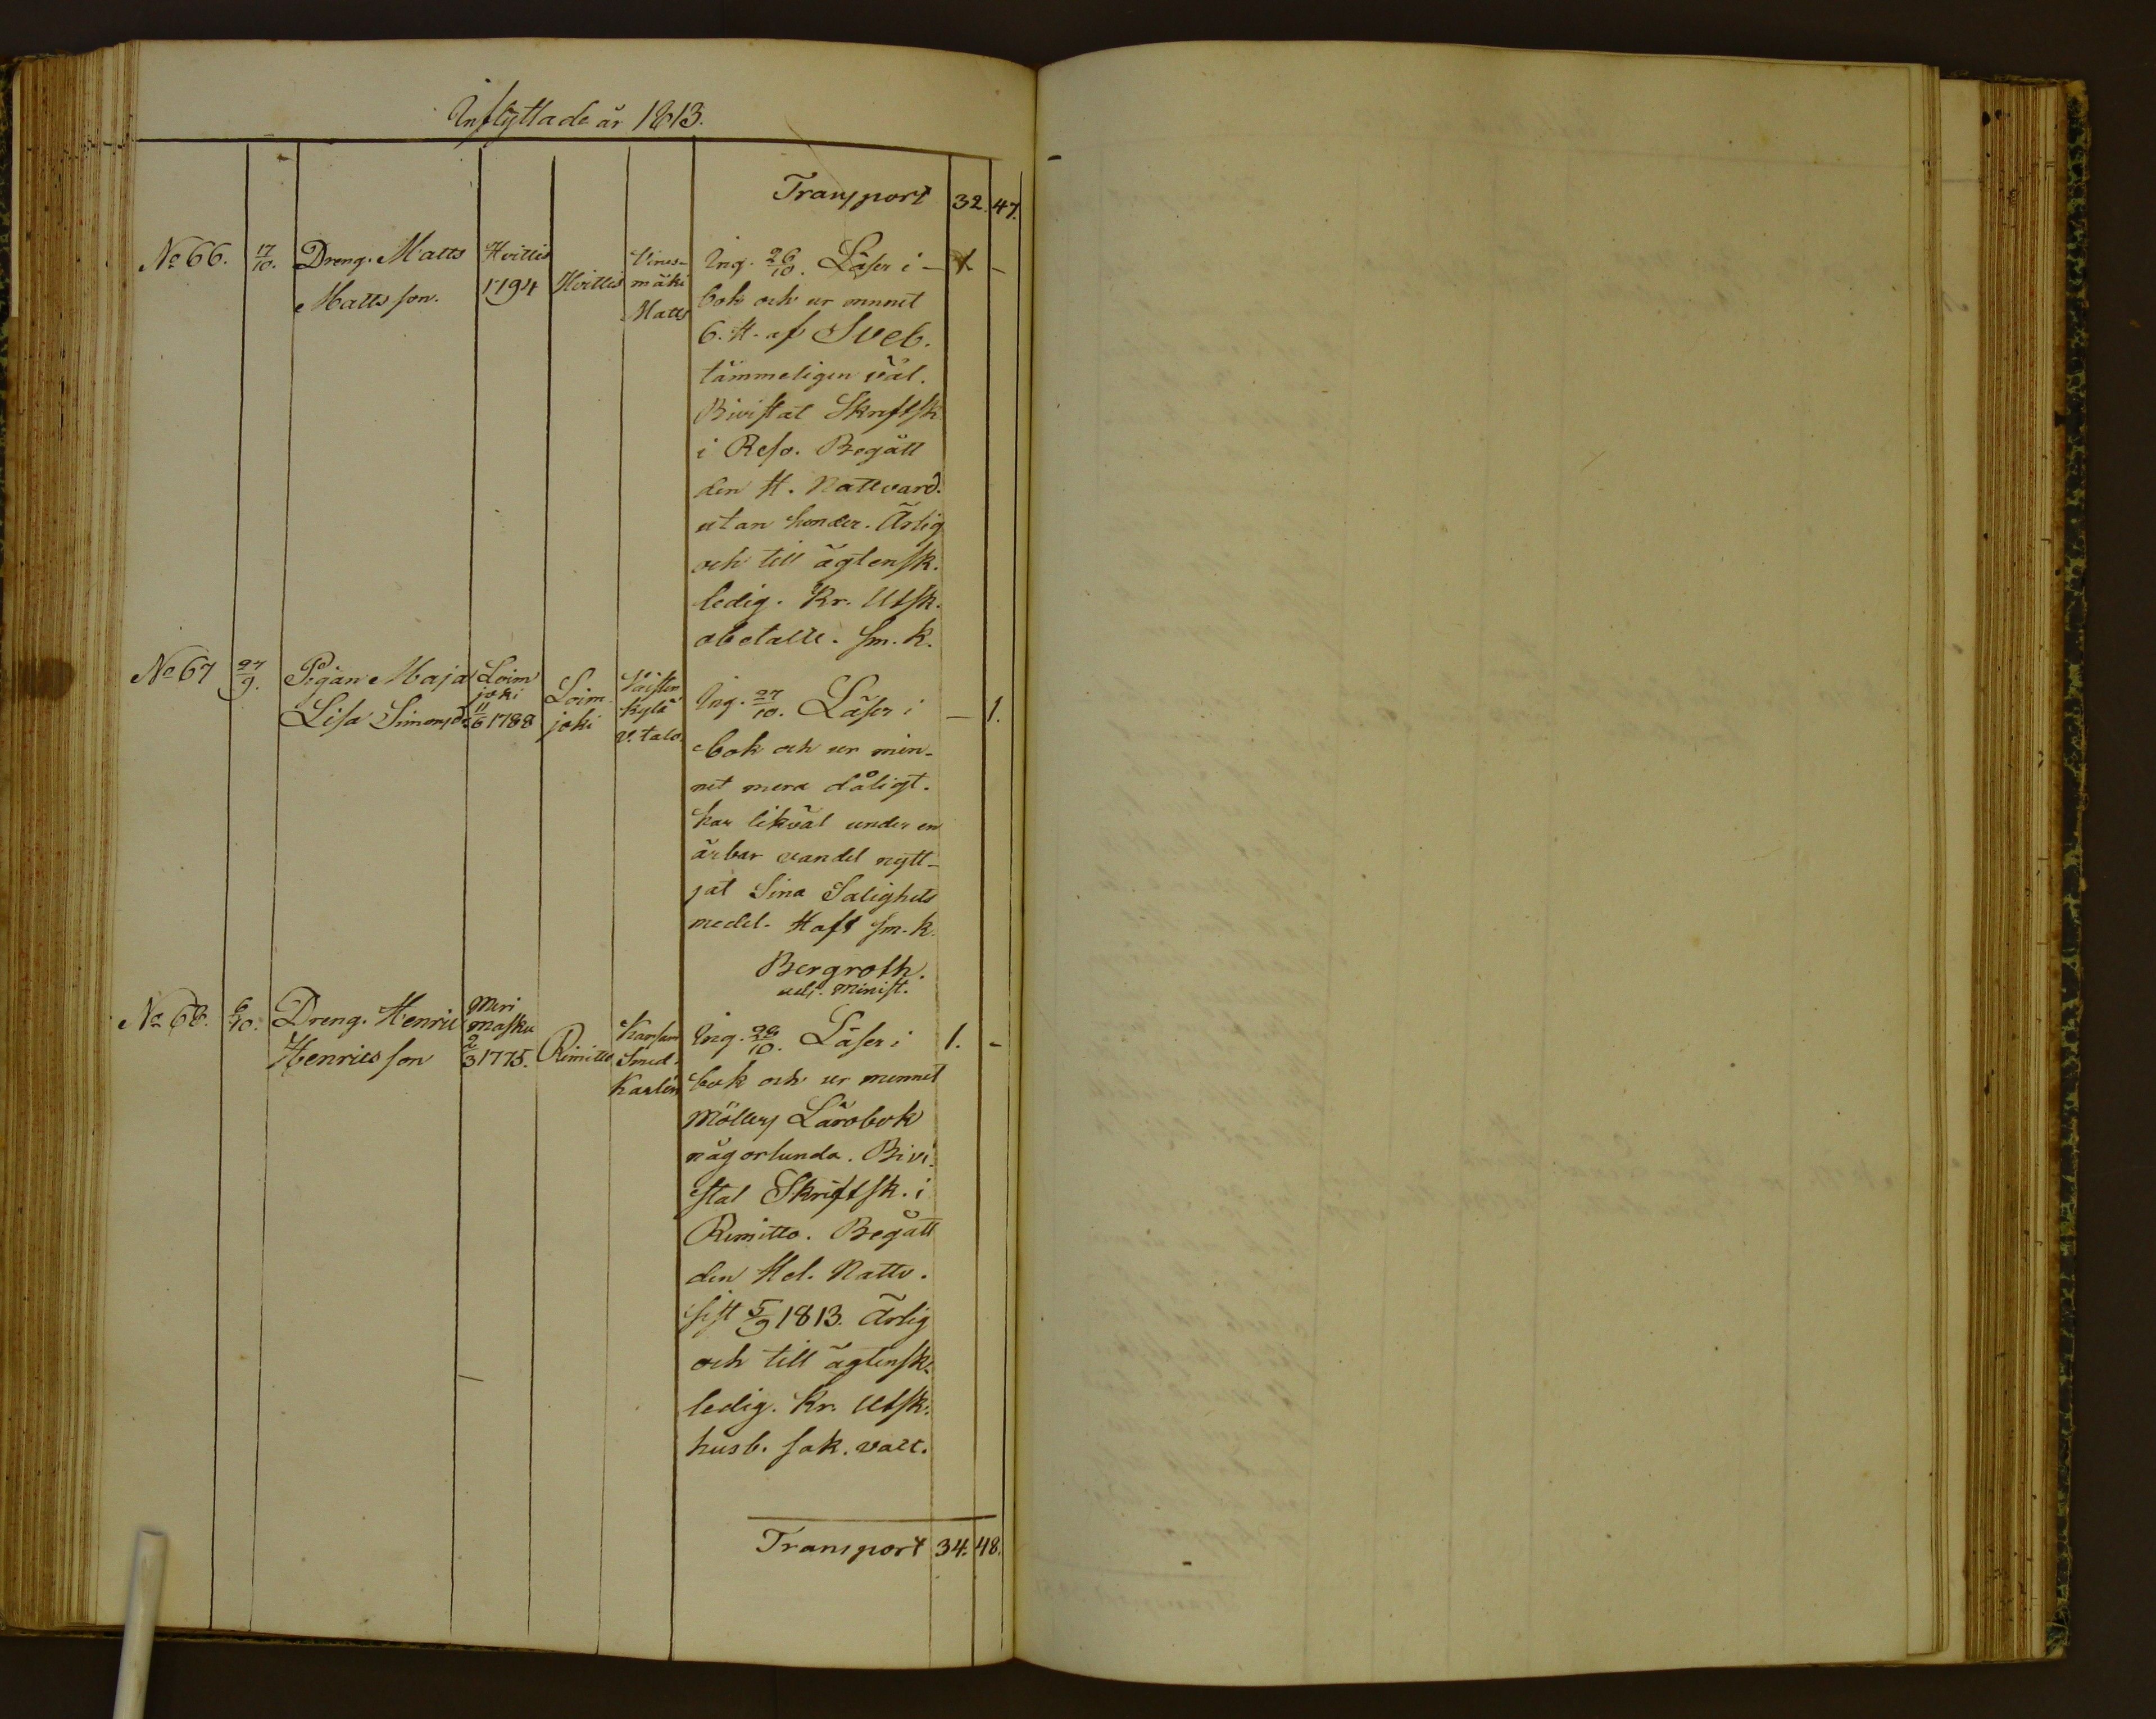 Inflyttade år 1813.
Transport 32. 47.
No 66. 17/10. Dreng. Matts Mattsson. Hvittis 1794 Hvittis Vines-mäki Matts
Ing. 26/10. Läser i - 1. -
bok och ur minnet
6. H. af Sveb.
tämmeligen väl.
Bivistat Skriftsk
i Reso. Begått
den H. Nattvard.
utan hinder. Ärlig
och till ägtensk.
ledig. Kr. Utsk.
obetalte. Sm. k.
No 67 27/9. Pigan Maja Lisa Simonsdr Loim joki 11/6 1788 Loim joki kylä v. talo.
Ing. 27/10. Läser i - 1.
bok och ur min-
net mera dåligt.
har likväl under en
ärbar vandel nytt-
jat Sina Salighets
medel. Haft sm. k.
Bergroth.
adj. Minist.
No 68. 6/10. Dreng. Henric Henricsson Meri masku 2/3 1775. Rimitto Smed. Karlén
Ing. 29/10. Läser i 1. -
bok och ur minnet
Möllers Lärobok
någorlunda. Bivi-
stat Skriftsk. i
Rimitto. Begått
den Hel. Nattv.
sist 5/9 1813. Ärlig
och till ägtensk.
ledig. Kr. Utsk.
husb. sak. valt.
Transport 34. 48.